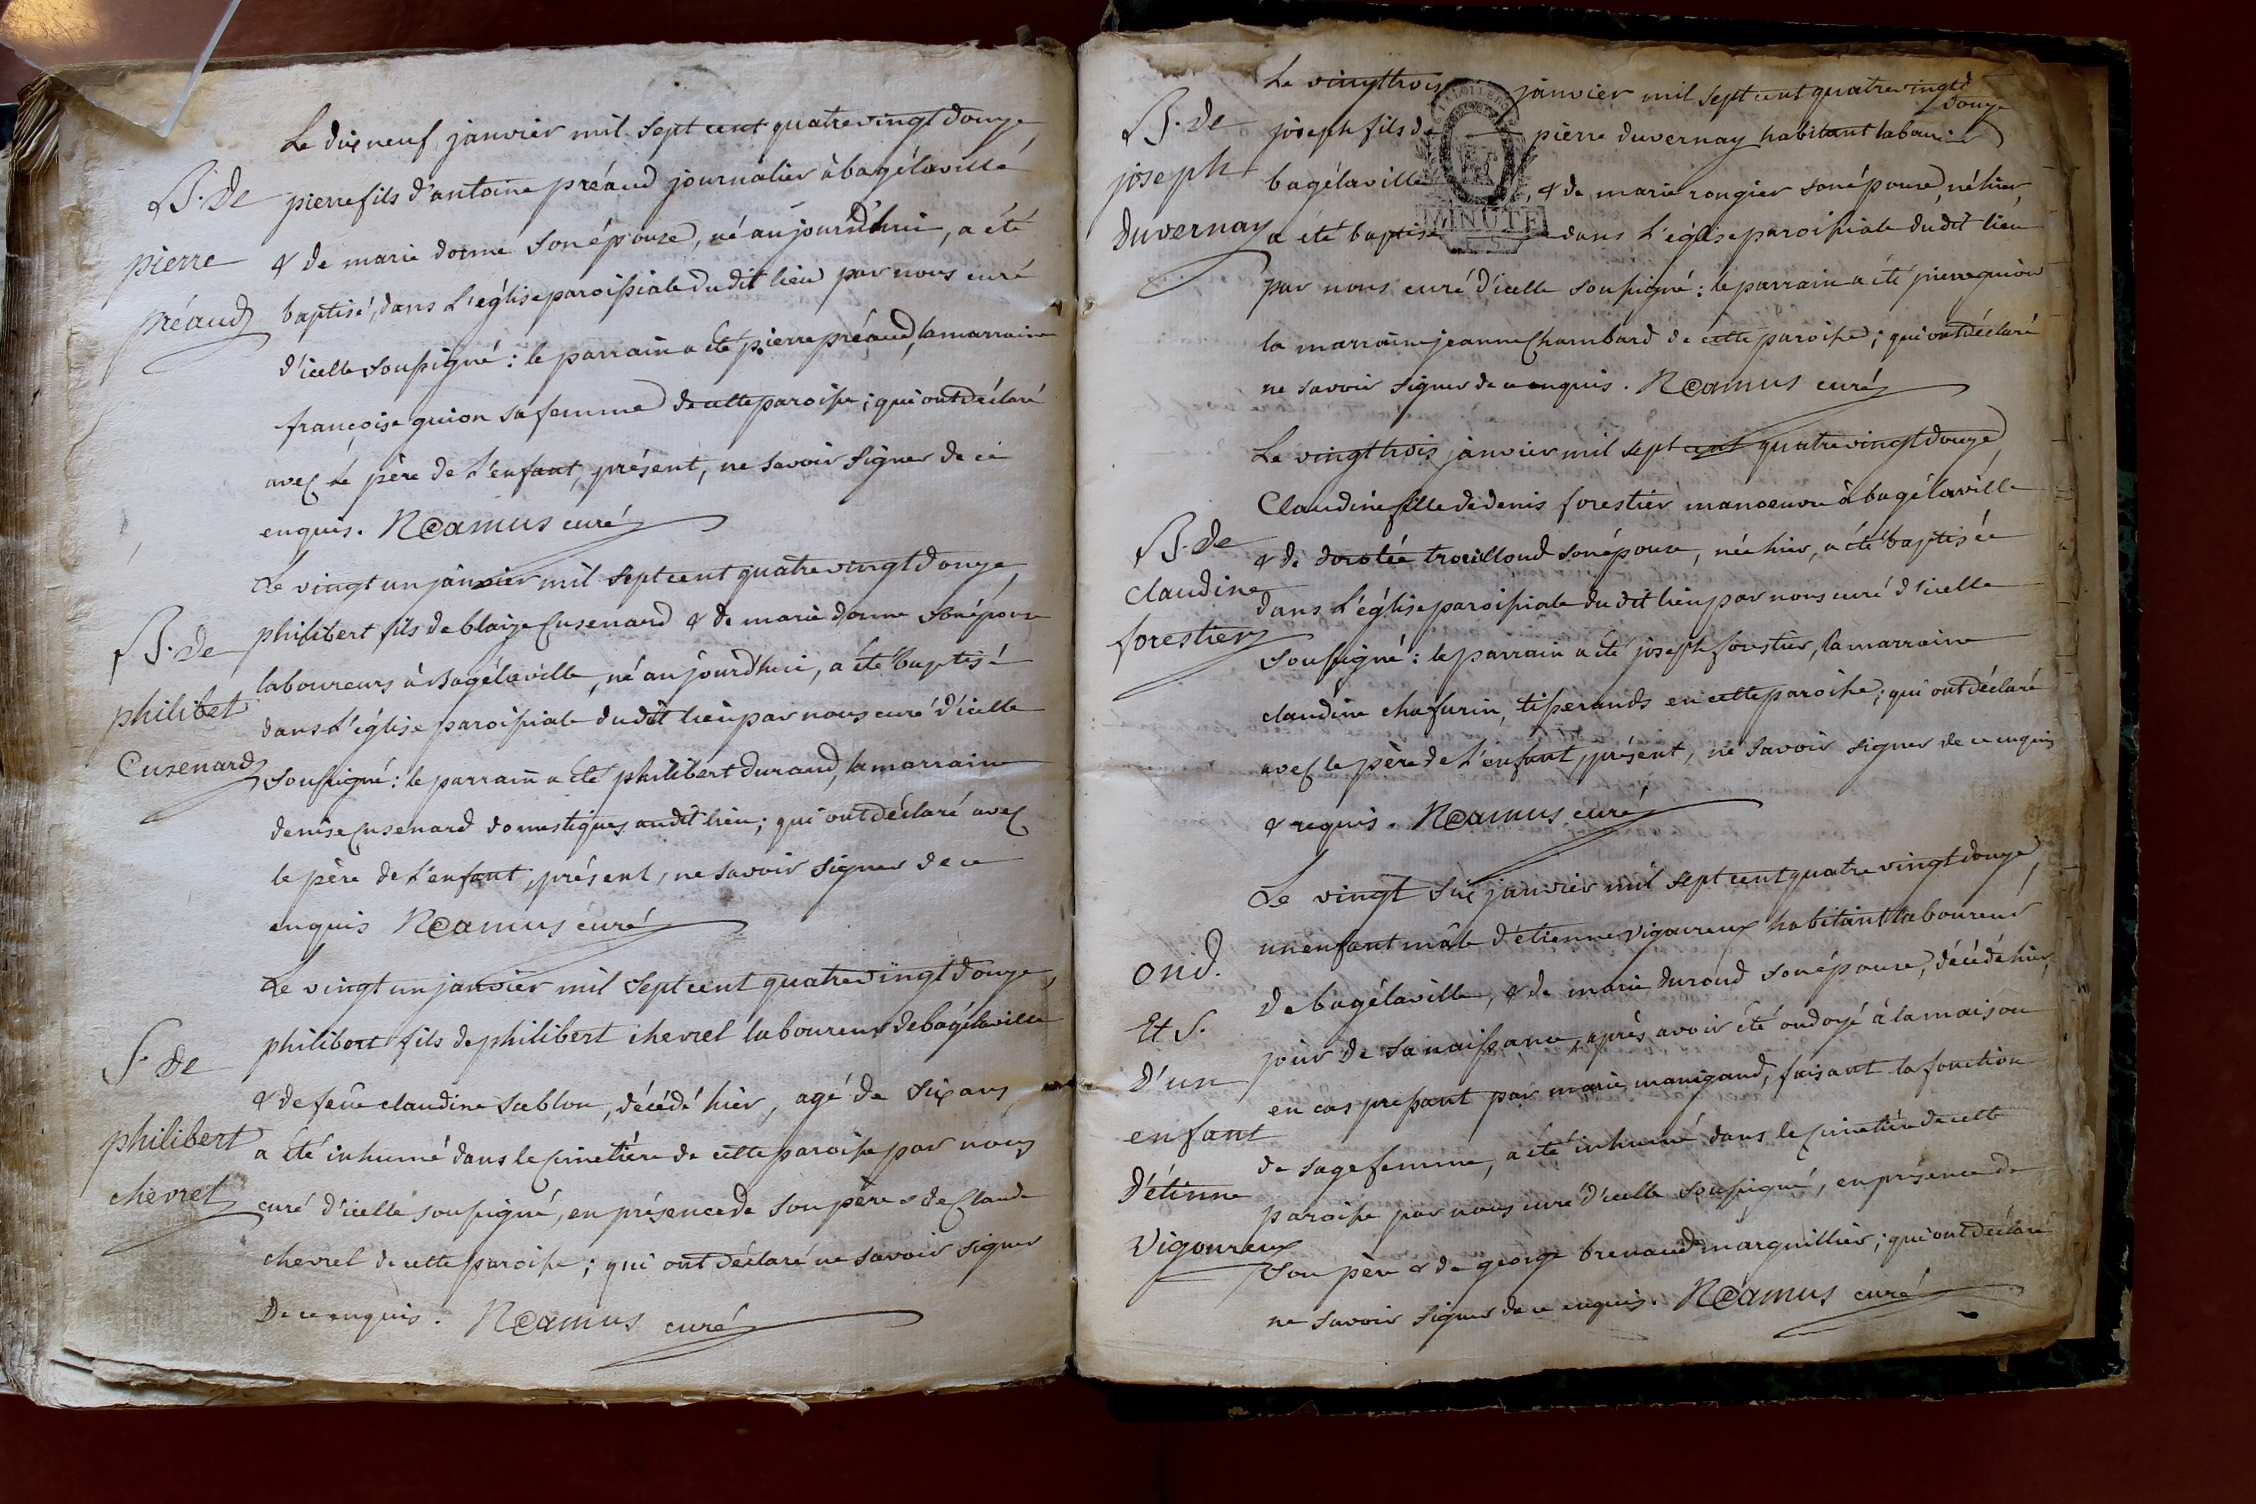 Le dix neuf janvier mil sept cent quatrevingt douze,
B. de
pierre
préaud
pierre fils d'antoine préaud journalier à bagélaville
& de marie dorme son épouse, né aujourd'hui, a été
baptisé, dans l'église paroissiale du dit lieu par nous curé
d'icelle soussigné : le parrain a été pierre préaud, la marraine
françoise guion sa femme de cette paroisse ; qui ont déclaré
avec le père de l'enfant, présent, ne savoir signer de ce
enquis. Noamus curé
Le vingt un janvier mil sept cent quatre vingt douze,
B. de
philibet
Cusenard
philibert fils de blaize Cusenard & de marie dorme son épouse
laboureurs à Bagélaville, né aujourd'hui, a été baptisé
dans l'église paroissiale du dit lieu par nous curé d'icelle
soussigné : le parrain a été philibert durand, la marraine
denise Cusenard domestiques au dit lieu ; qui ont déclaré avec
le père de l'enfant, présent, ne savoir signer de ce
enquis Noamus curé
Le vingt un janvier mil sept cent quatre vingt douze,
S. de
philibert
chevrel
philibert fils de philibert chevrel laboureur de bagélaville
& de feüe claudine sablon, décédé hier, agé de six ans,
a été inhumé dans le cimetière de cette paroisse par nous
curé d'icelle soussigné, en présence de son père & de Claude
chevrel de cette paroisse ; qui ont déclaré ne savoir signer
de ce enquis. Noamus curé
Le vingt trois janvier mil sept cent quatrevingtd
douze
B. de
joseph
duvernay
joseph fils de pierre duvernay habitant
bagélaville, & de marie rongier son épouse, né hier,
a été baptisé dans l'église paroissiale du dit lieu
MINUTE
par nous curé d'icelle soussigné : le parrain a été pierre guion
la marraine jeanne Chambard de cette paroisse ; qui ont déclaré
ne savoir signer de ce enquis. Noamus curé
Le vingt trois janvier mil sept cent quatre vingt douze,
B. de
claudine
forestier
Claudine fille de denis forestier manoeuvre à bagélaville
& de dorotée trouilloud son épouse, née hier, a été baptisée
dans l'église paroissiale du dit lieu par nous curé d'icelle
soussigné : le parrain a été joseph forestier, la marraine
claudine chafurin, tisserands en cette paroisse ; qui ont déclaré
avec le père de l'enfant, présent, ne savoir signer de ce enquis
& requis. Noamus curé
Le vingt six janvier mil sept cent quatre vingt douze,
ond.
Et S.
d'un
enfant
d'étinne
Vigoureux
un enfant mâle d'étienne vigoureux habitant laboureur
de bagélaville, & de marie durand son épouse, décédé hier,
jour de sa naissance, après avoir été ondoyé à la maison
en cas pressant par marie manigand, faisant la fonction
de sage femme, a été inhumé dans le cimetière de cette
paroisse par nous curé d'icelle soussigné, en présence de
son père & de george brenaud marguillier ; qui ont déclaré
ne savoir signer de ce enquis. Noamus curé